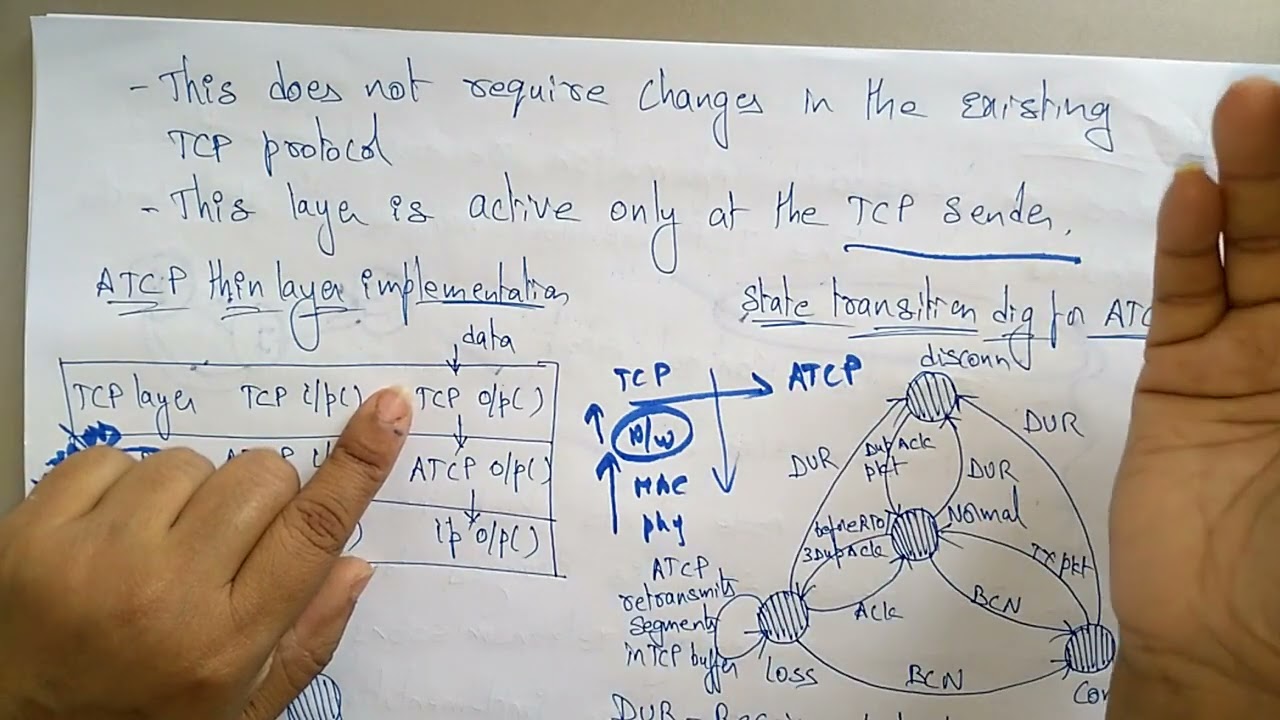 - This does not require changes in the existing
TCP protocol
- This layer is active only at the TCP Sender.
ATCP thin layer implementation
State transition dig for ATC
data
TCP layer TCP i/p() TCP o/p()
ATCP o/p()
ip o/p()
TCP ATCP
N/w
MAC
phy
disconn
DUR
DUR
Dup Ack
pkt
DUR
Normal
before RTO/
3 Dup Ack
TX pkt
BCN
Ack
ATCP
retransmits
Segments
in TCP buffer
Loss
BCN
Con
DUR -